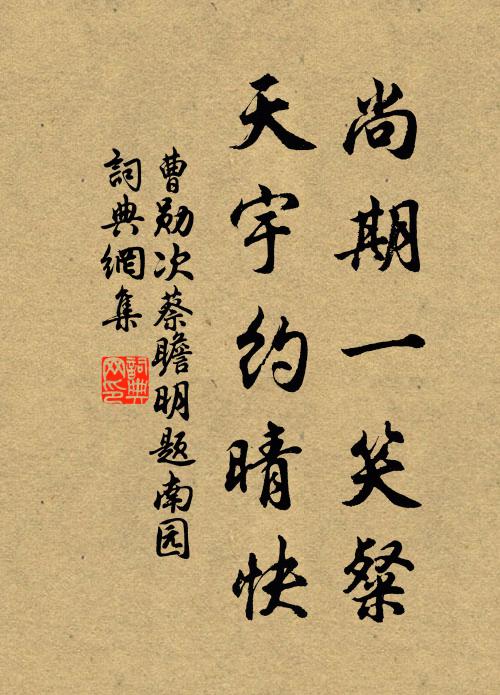 尚期一笑粲
天宇约晴快
曹勋次蔡瞻明题南园
詞典網集
詞典网印